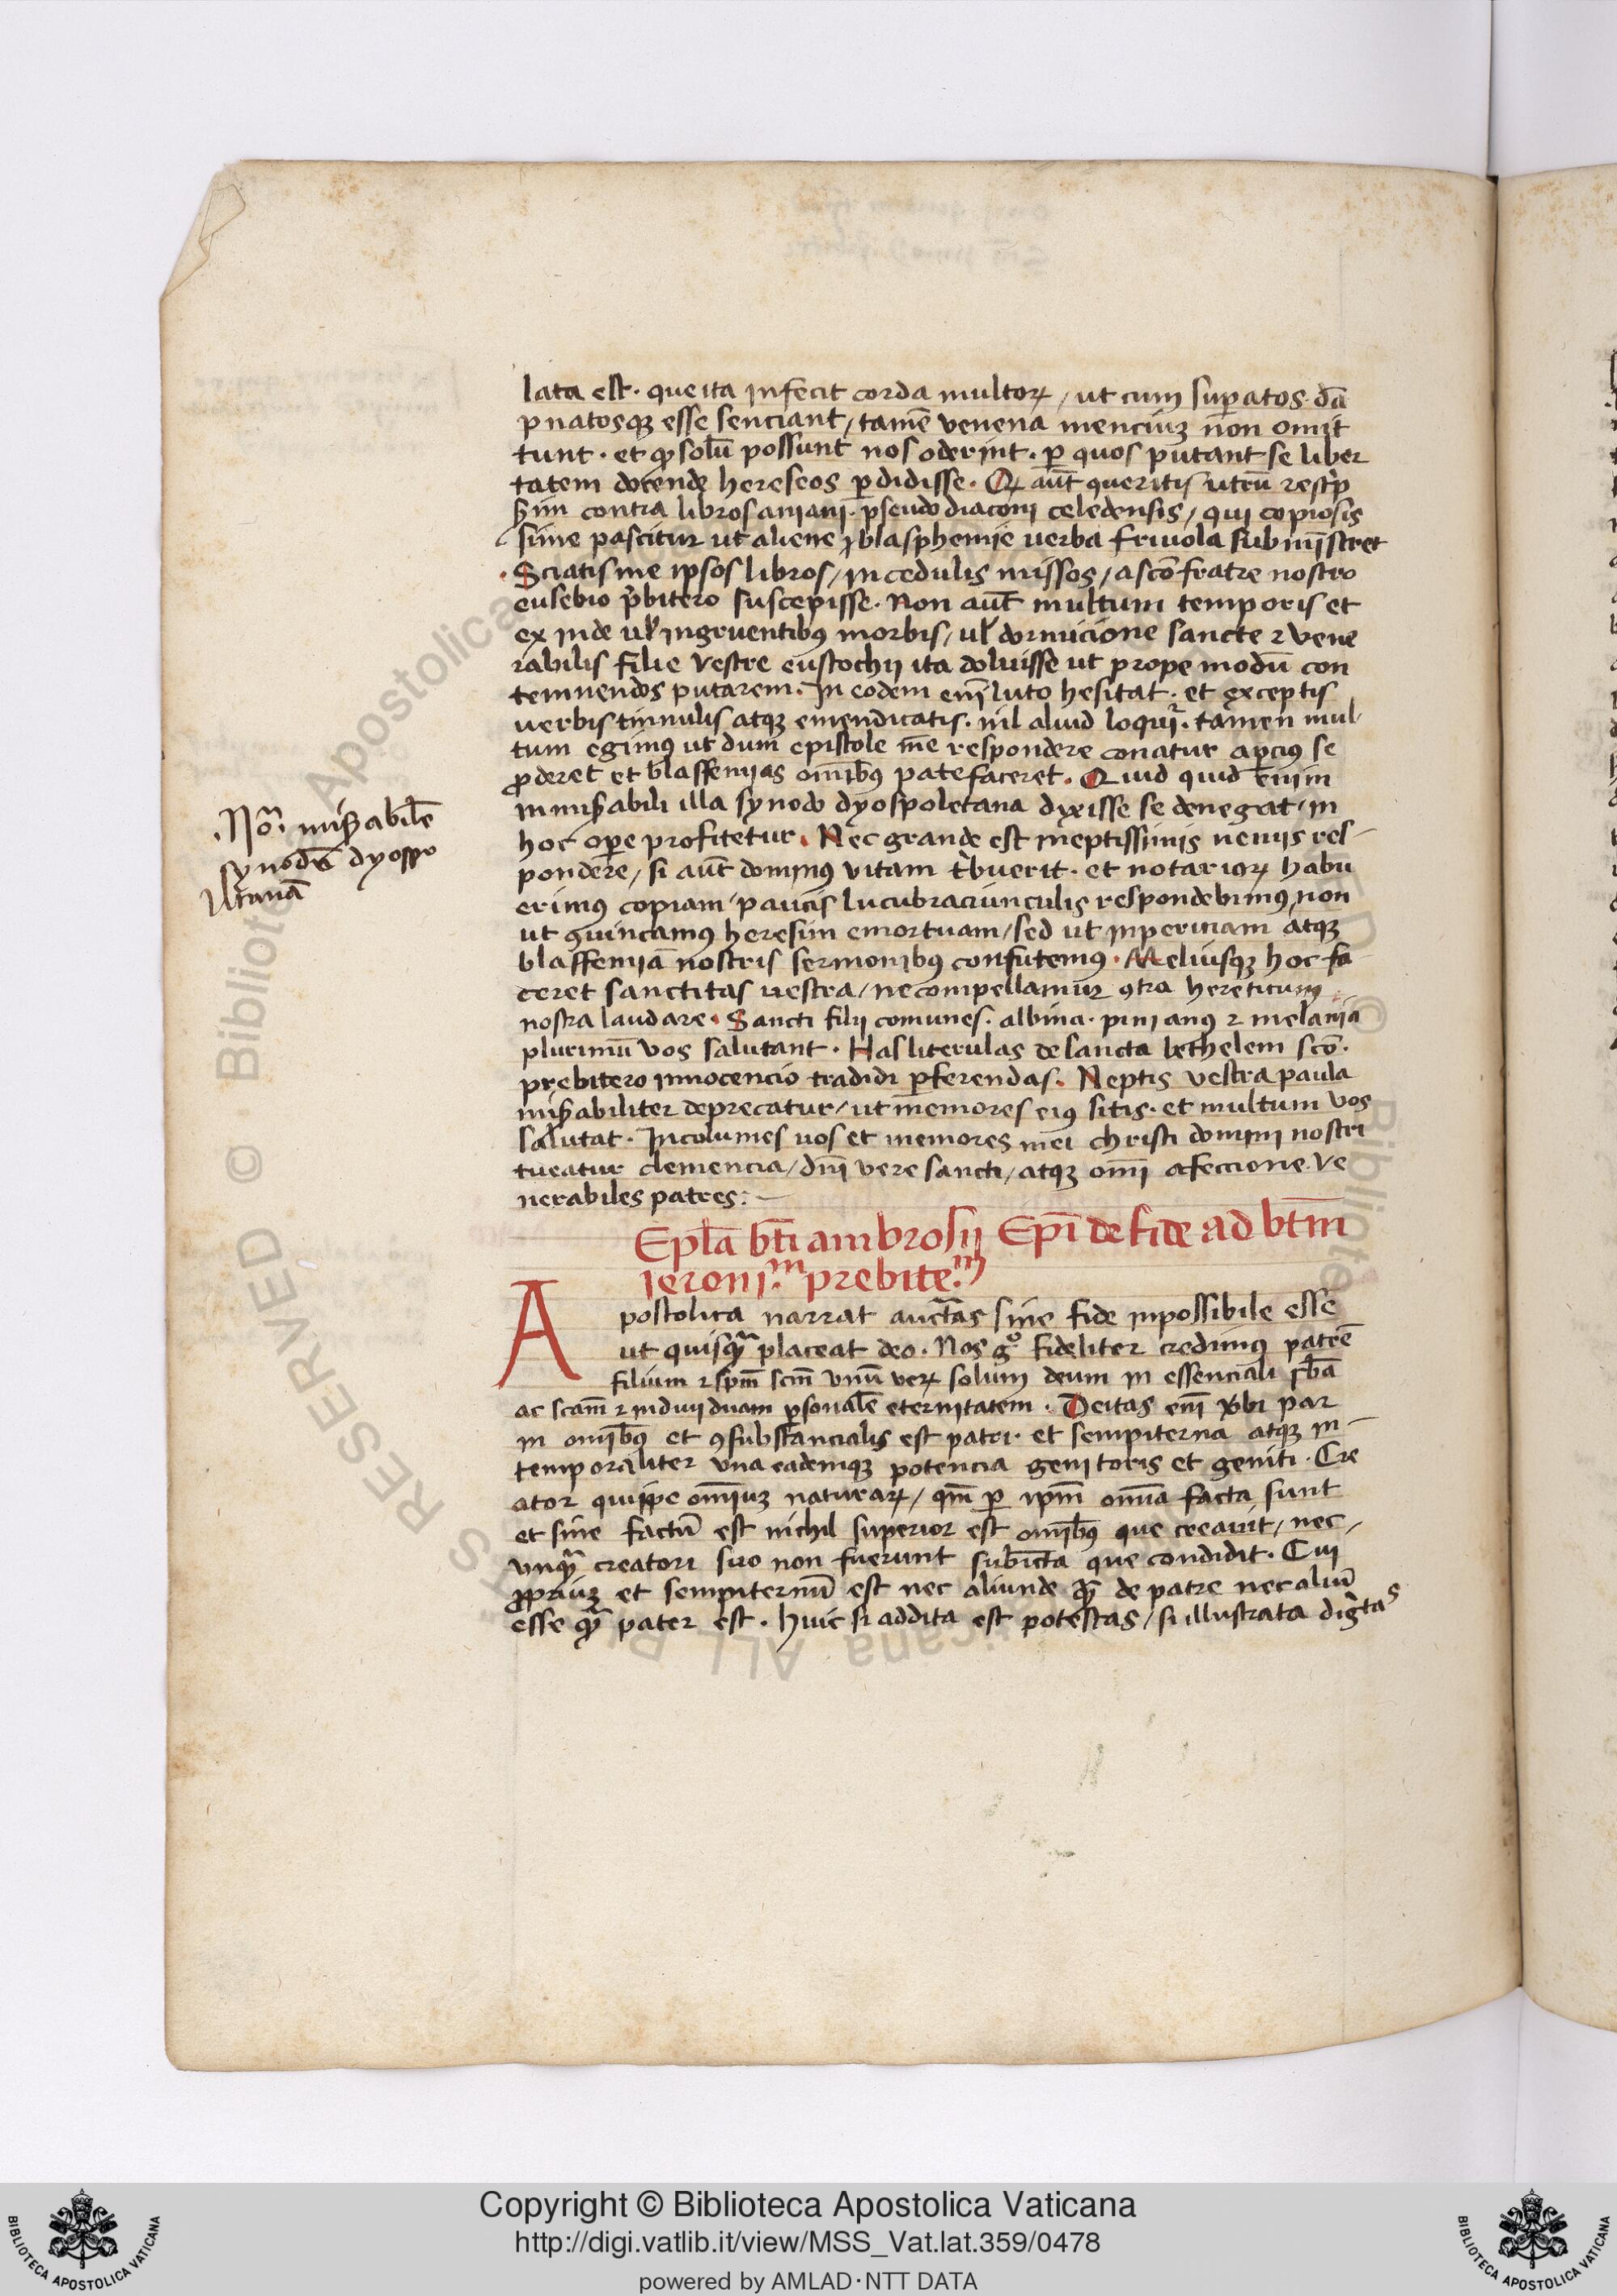 lata est· que ita infecit corda multoꝝ / ut cum suꝑatos dā
pnatosqꝫ esse senciant / tamē venena menciuꝫ non omit
tunt · et ꝙ solū possunt nos oderint · ꝑ quos putant se liber
tatem docende hereseos ꝑdidisse · Qꝫ aūt queritis utrū
contra libros aniani · pseudo diaconi celedensis / qui copiosis
sime pascitur ut aliene blasphemie verba friuola subministret
Sciatis me ipsos libros / in cedulis missos / a scō fratre nostro
eusebio p̄bitero suscepisse · Non aūt multum temporis et
ex inde ul̓ ingruentibꝰ morbis / ul̓ dormicione sancte ⁊ vene
rabilis filie vestre eustochij ita doluisse ut prope modū con
temnendos putarem · In eodem enī luto hesitat · et exceptis
verbis tinnulis atqꝫ emendicatis · nil aliud loquiᷣ · tamen mul
tum egimꝰ ut dum epistole m̄e respondere conatur apciꝰ se
ꝓderet et blasfemias omībꝰ patefaceret · Quid quid enim
in misꝰabili illa synodo dyospoletana dixisse se denegat · in
hoc oꝑe profitetur · Nec grande est ineptissimis nenijs res
pondere / si aūt dominꝰ vitam t̓buerit · et notarioꝝ habu
erimꝰ copiam / paucis lucubraciunculis respondebimꝰ / non
ut ꝯuincamꝰ heresim emortuam / sed ut inpericiam atqꝫ
blasfemiā nostris sermonibꝰ confutemꝰ · Meliusqꝫ hoc fa
ceret sanctitas vestra / ne compellamur ꝯtra hereticum
nostra laudare · Sancti filij comunes · albina · pinianꝰ ⁊ melania
plurimū vos salutant · Has literulas de sancta bethelem scō ·
prebitero innocencio tradidi ꝑferendas · Neptis vestra paula
misꝰabiliter deprecatur / ut memores eiꝰ sitis · et multum vos
salutat · Incolumes vos et memores mei christi domini nostri
tueatur clemencia / dn̄i vere sancti / atqꝫ omī afeccione ve
nerabiles patres : —
.No͡. misꝰabilē
synodū dyospo
litanā
Epl̄a bt̄i ambrosij Epī de fide ad bt̄m
ieroni.ᵐ prebite.ᵐ
Apostolica narrat auct̄as sine fide inpossibile esse
ut quisqᷓ placeat deo · Nos gͦ fideliter credimꝰ patrē
filium ⁊ spm̄ scm̄ unū veꝝ solum deum in essenciali
ac scām ⁊ indiuiduam ꝑsonalē eternitatem · Deitas enī v̓bi par
in omībꝰ et ꝯsubstancialis est patri · et sempiterna atqꝫ in
temporaliter una eademqꝫ potencia genitoris et geniti · Cre
ator quippe omīuꝫ naturaꝝ / qm̄ ꝑ ipm̄ omīa facta sunt
et sine factū est nichil superior est omībꝰ que creauit / nec /
unqᷓ creatori suo non fuerunt subiecta que condidit · Cui
ꝓpriuꝫ et sempiternū est nec aliunde qᷓ de patre nec aliud
esse qᷓ pater est · Huic si addita est potestas / si illustrata dig̓tas
Copyright © Biblioteca Apostolica Vaticana
http://digi.vatlib.it/view/MSS_Vat.lat.359/0478
powered by AMLAD·NTT DATA